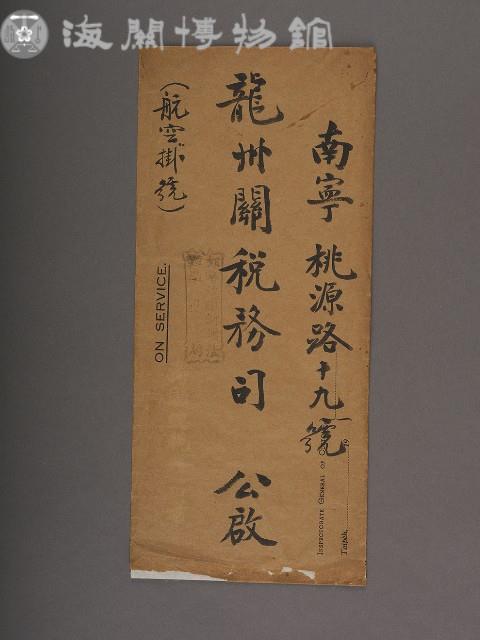 海關博物館
南寧 桃源路十九號
龍州關稅務司 公啟
(航空掛號)
ON SERVICE.
INSPECTORATE GENERAL OF
Taipeh, 19